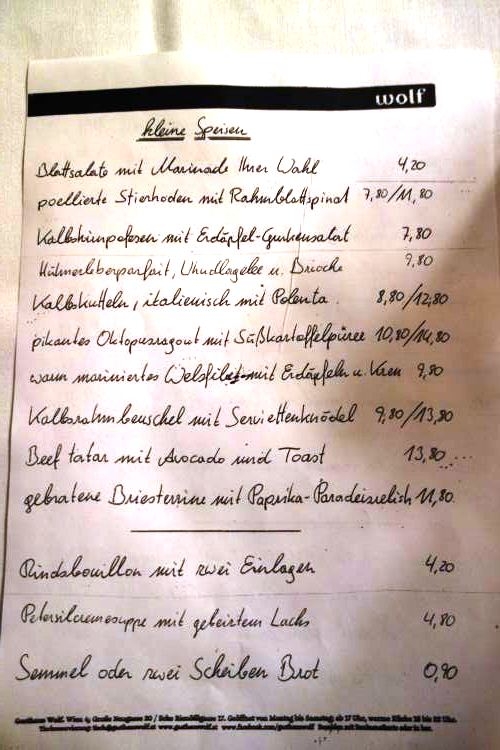 wolf
kleine Speisen
Blattsalate mit Marinade Ihrer Wahl 4,20
poellierte Stierhoden mit Rahmblattspinat 7,80/11,80
Kalbshirnpofesen mit Erdäpfel-Gurkensalat 7,80
Hühnerleberparfait, Uhudlergelee u. Brioche 9,80
Kalbskutteln, italienisch mit Polenta 8,80/12,80
pikantes Oktopusragout mit Süßkartoffelpüree 10,80/14,80
warm mariniertes Welsfilet mit Erdäpfeln u. Kren 9,80
Kalbsrahmbeuschel mit Serviettenknödel 9,80/13,80
Beef tatar mit Avocado und Toast 13,80
gebratene Briesterrine mit Paprika-Paradeisrelish 11,80
Rindsbouillon mit zwei Einlagen 4,20
Petersilcremesuppe mit gebeiztem Lachs 4,80
Semmel oder zwei Scheiben Brot 0,90
Gasthaus Wolf. Wien 4, Große Neugasse 20 / Ecke Rienößlgasse 17. Geöffnet von Montag bis Samstag: ab 17 Uhr, warme Küche 18 bis 22 Uhr.